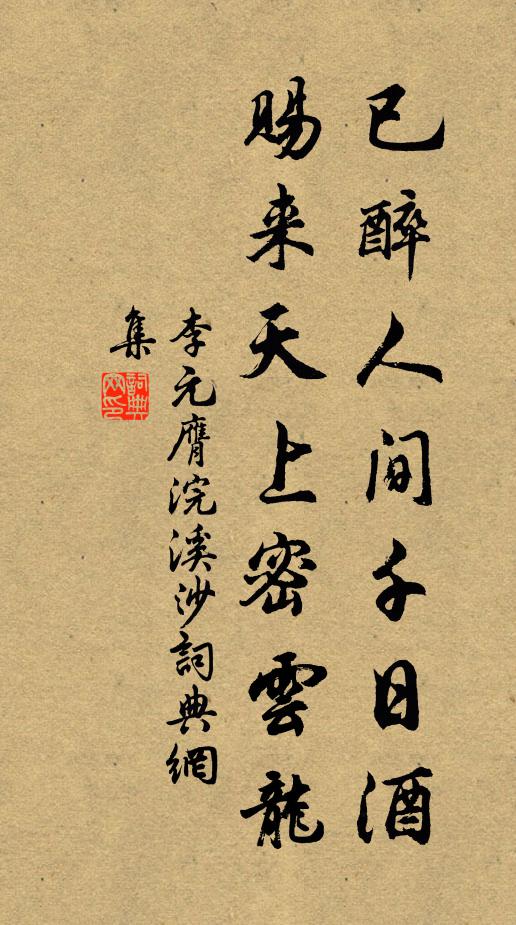 已醉人間千日酒
賜来天上密雲龍
李元膺浣溪沙詞典網
集
詞典網印